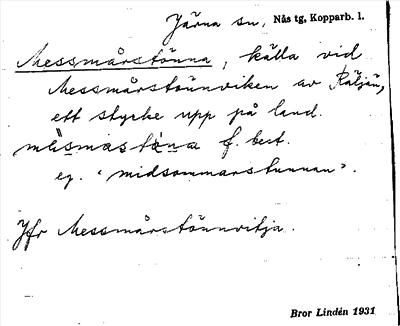 Järna sn, Nås tg, Kopparb. l.
Messmårstönna, källa vid
Messmårstönnviken av Räljän,
ett stycke upp på land.
mäsmastöna f. best.
eg. "midsommarstunnan".
Jfr Messmårstönnvitja.
Bror Lindén 1931